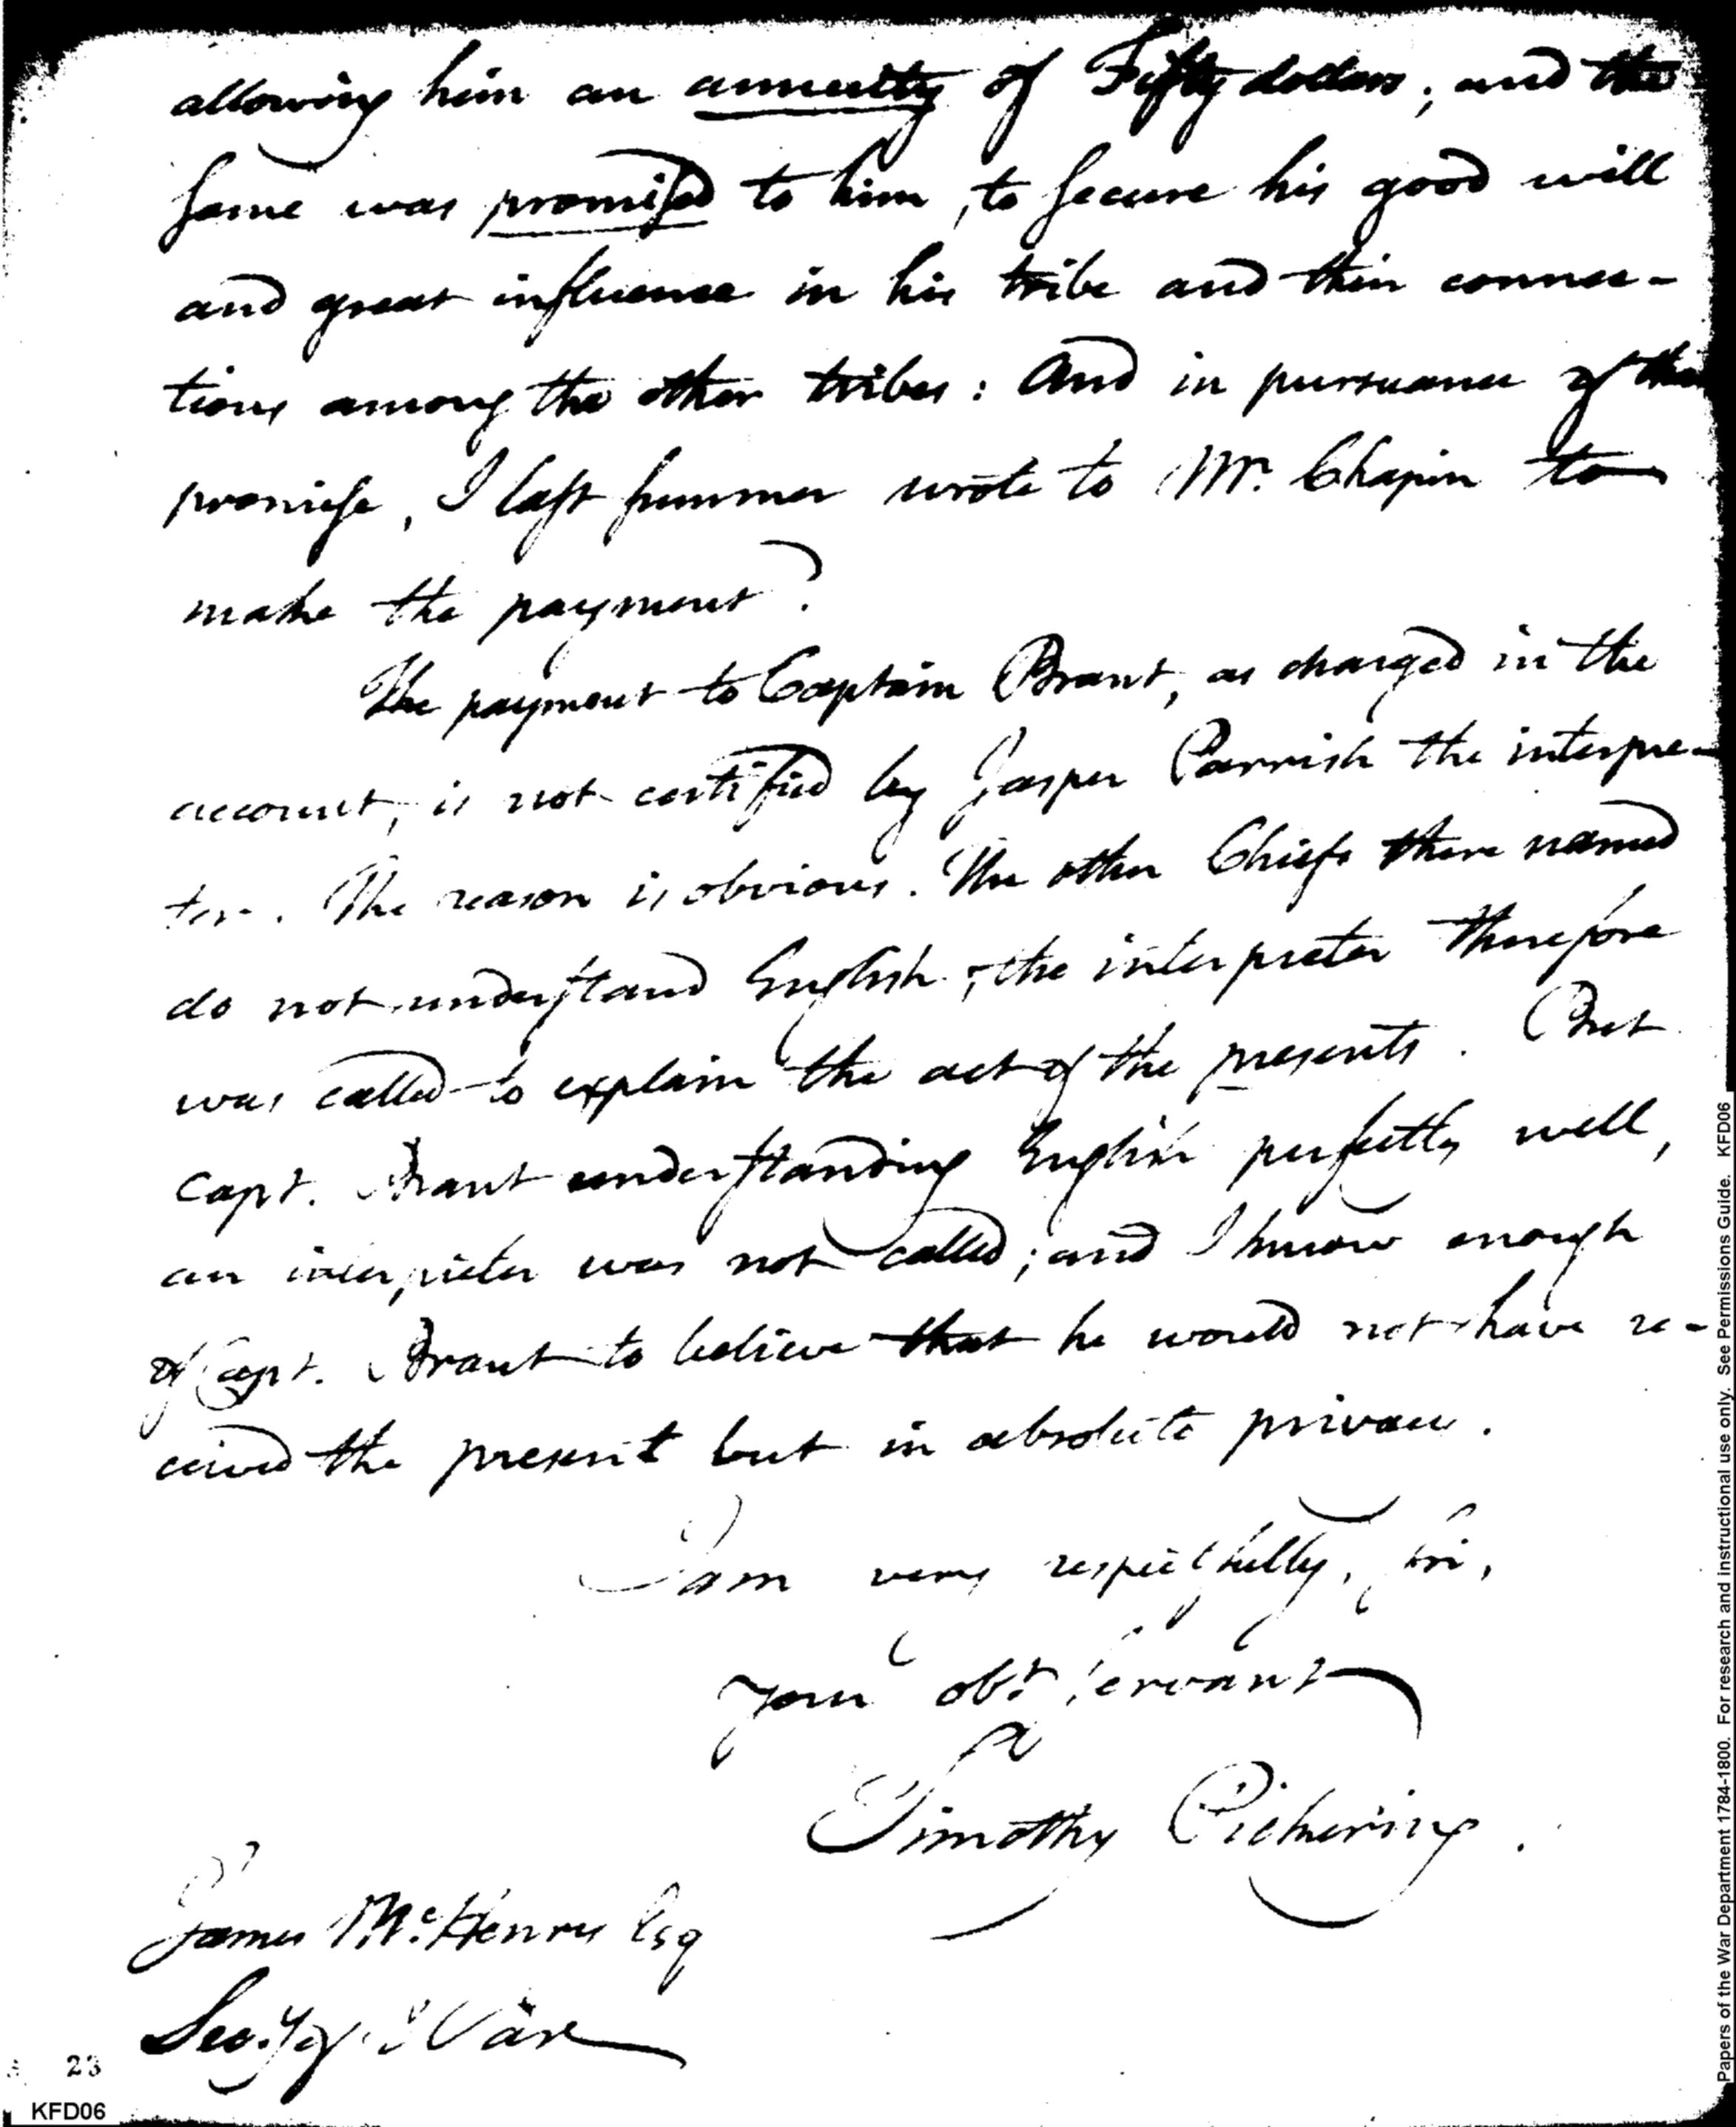 allowing him an annuity of Fifty dollars; and the
same was promised to him, to secure his good will
and great influence in his tribe and their connec-
tions among the other tribes: And in pursuance of the
promise, I last summer wrote to Mr. Chapin to
make the payment.
The payment to Captain Brant, as charged in the
account, is not certified by Jasper Parrish the interpre-
ter. The reason is obvious. The other Chiefs there named
do not understand English; the interpreter therefore
was called to explain the act of the presents. But
Capt. Brant understanding English perfectly well,
an interpreter was not called; and I know enough
of Capt. Brant to believe that he would not have re-
ceived the present but in absolute privacy.
I am very respectfully, sir,
your obt. servant
Timothy Pickering.
James McHenry Esq
Secy of War
23
KFD06
Papers of the War Department 1784-1800. For research and instructional use only. See Permissions Guide. KFD06